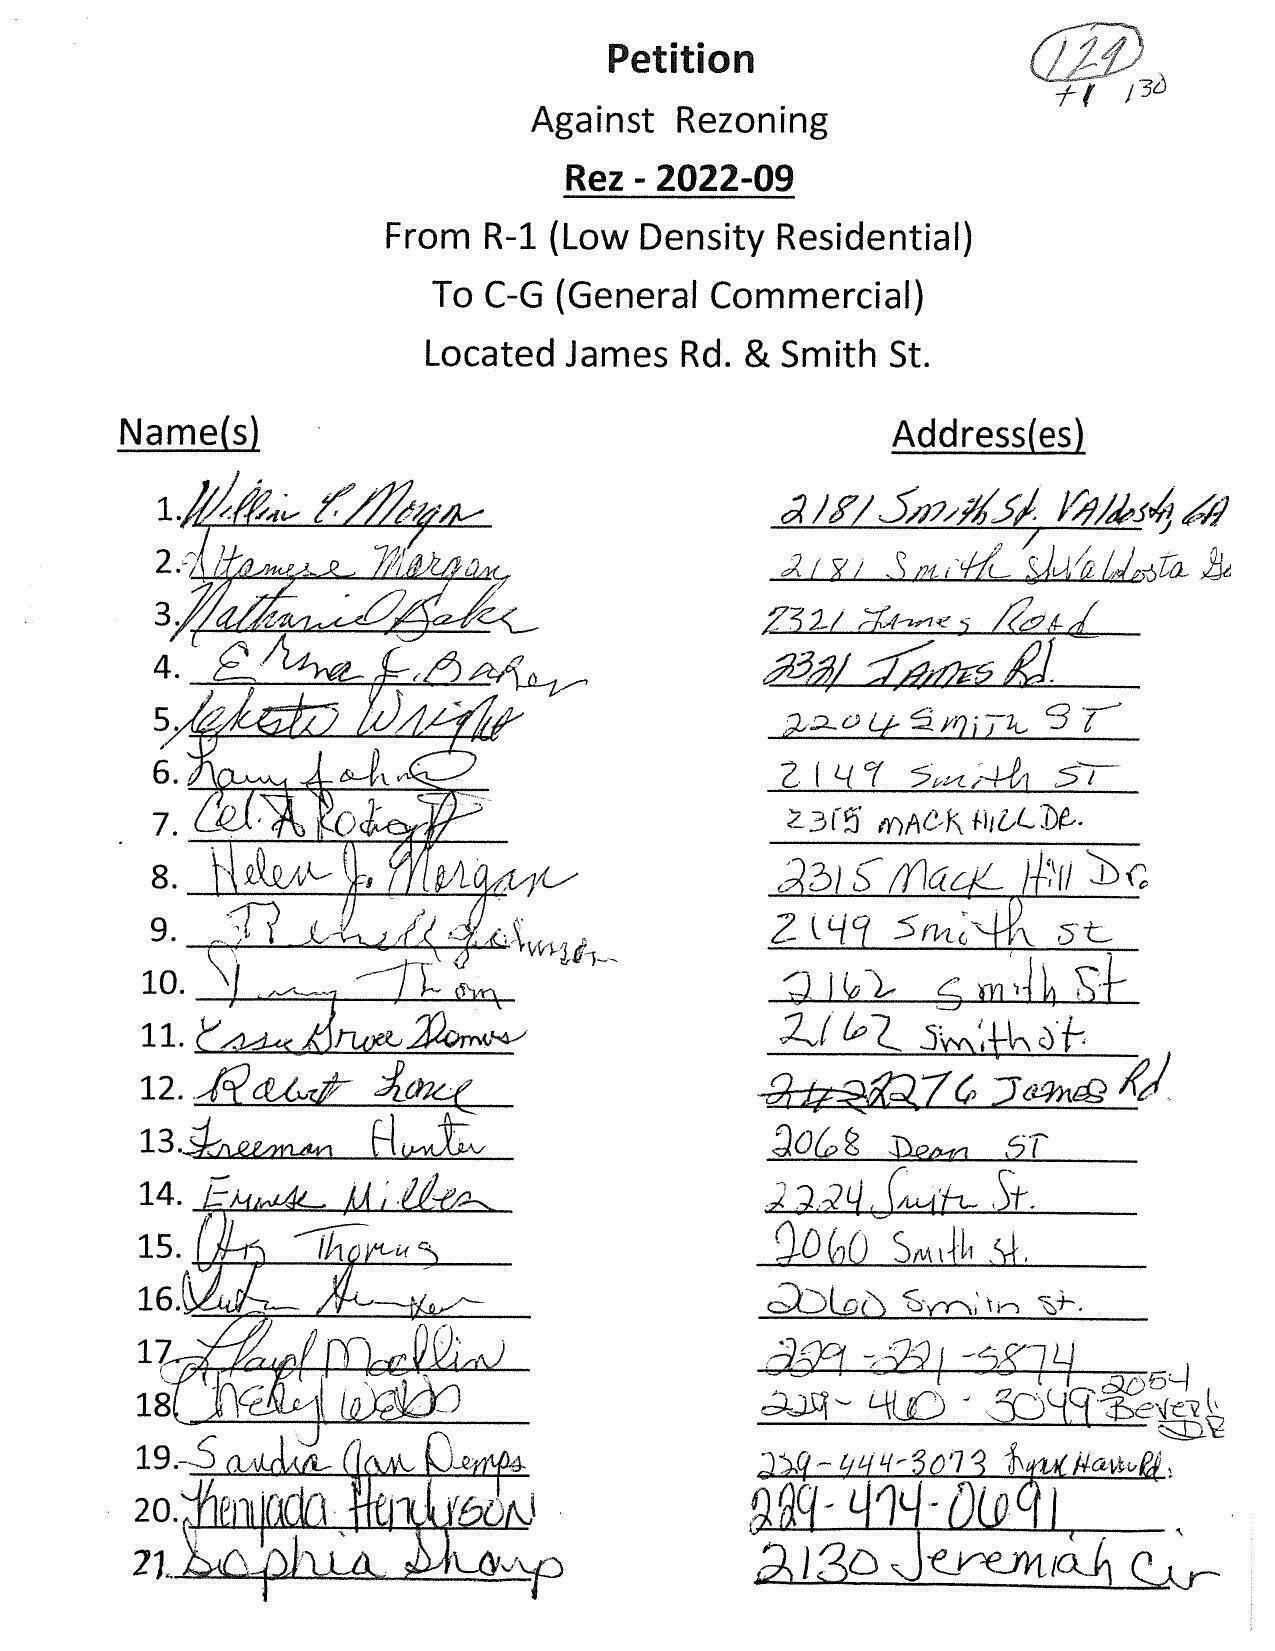 Petition
129
+1 130
Against Rezoning
Rez - 2022-09
From R-1 (Low Density Residential)
To C-G (General Commercial)
Located James Rd. & Smith St.
Name(s) Address(es)
1. Morgan 2181 Smith St. Valdosta, GA
2. Altamese Morgan 2181 Smith St Valdosta Ga
3. Nathaniel Baker 2321 James Road
4. Erma J. Baker 2321 James Rd.
5. Wright 2204 Smith ST
6. Larry 2149 Smith ST
7. Col. A 2315 MACK HILL DR.
8. Helen J. Morgan 2315 Mack Hill Dr.
9. Johnson 2149 Smith st
10. Thom 2162 Smith St
11. Essie Thomas 2162 Smith St.
12. Robert 2276 James Rd.
13. Freeman Hunter 2068 Dean ST
14. Miller 2224 Smith St.
15. Otis Thomas 2060 Smith St.
16. 2060 Smith St.
17. Lloyd Macklin 229-221-5874
18. Webb 229-460-3049 2054
Beverly
DR
19. Sandra Jan Demps 229-444-3073
20. Kenyada Henderson 229-474-0691
21. Sophia Sharp 2130 Jeremiah Cir